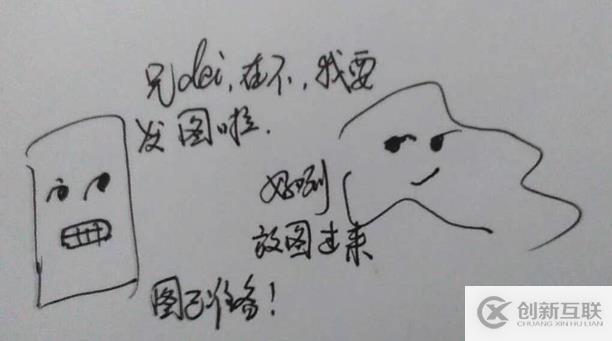 兄dei,在不,我要
发图啦.
好咧
放图过来
图已准备!
创新互联
CHUANG XIN HU LIAN